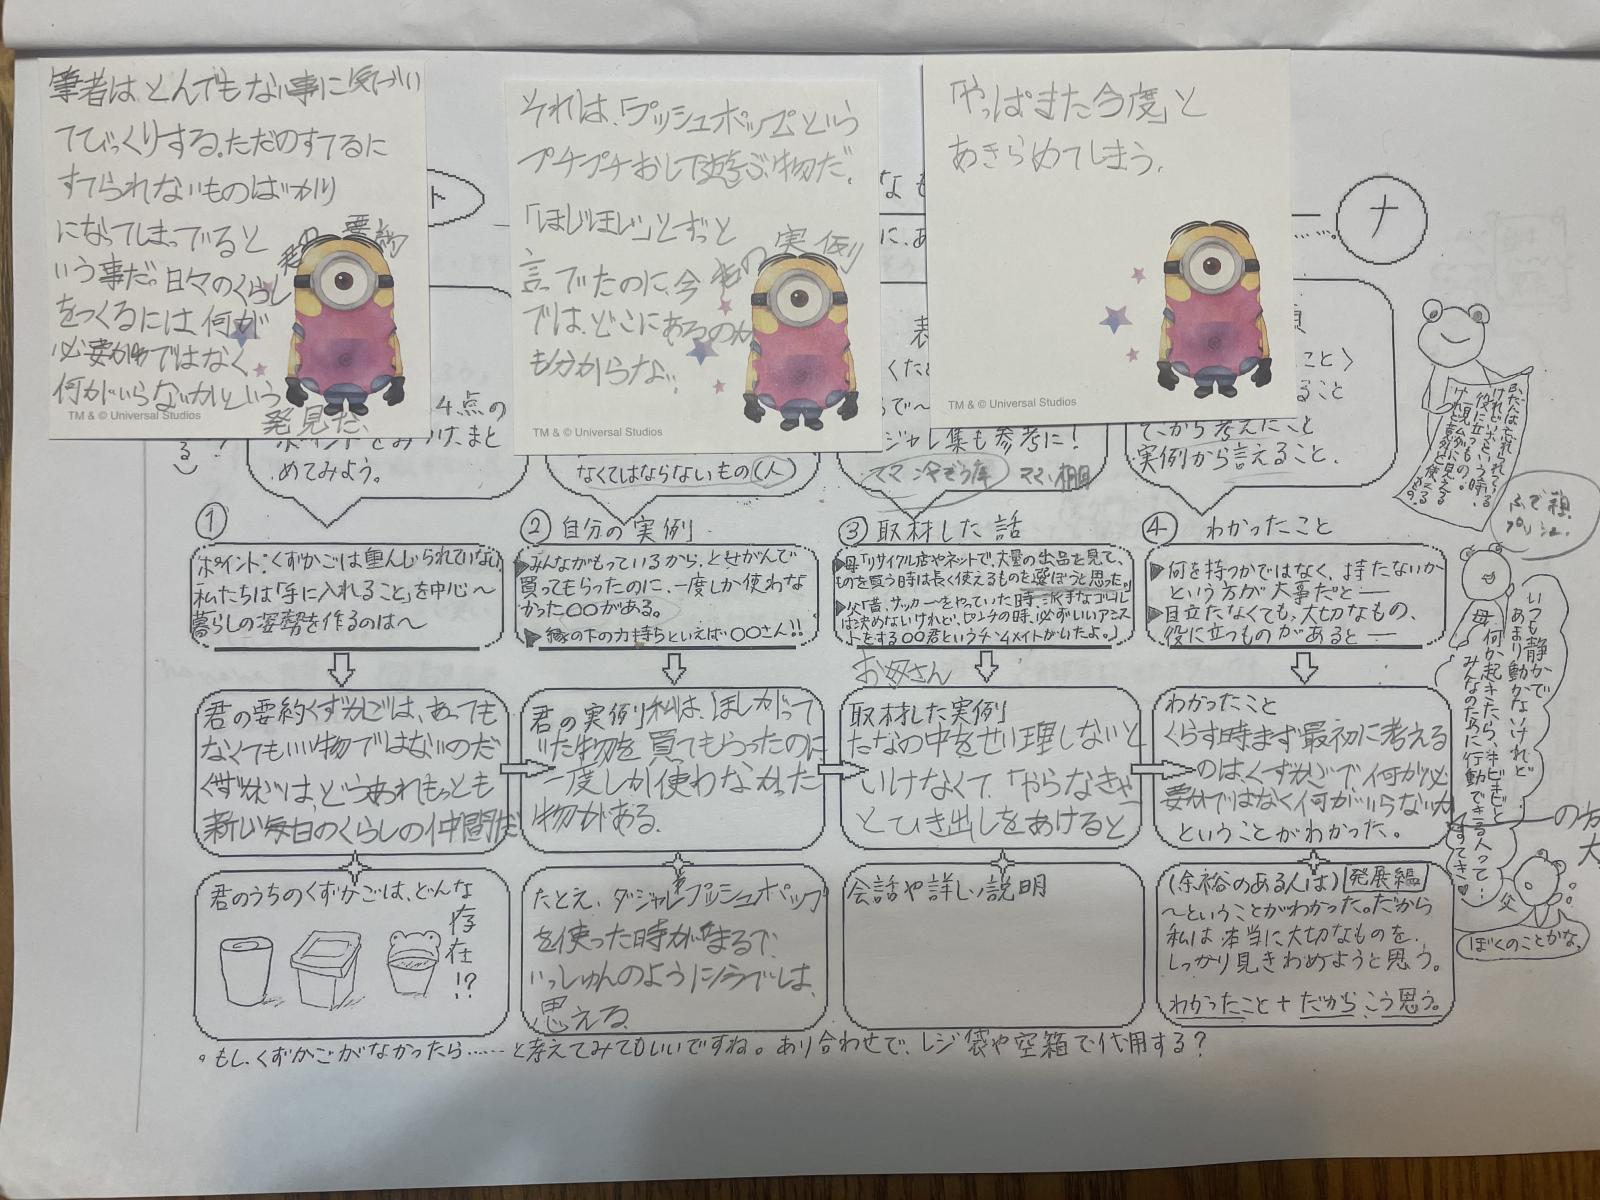 筆者は、とんでもない事に気づい
てびっくりする。ただのすてるに
すてられないものばかり
になってしまっでると
いう事だ。日々のくらし
をつくるには、何が
必要かではなく
何がいらないかという
発見だ、
君の要約
TM & © Universal Studios
それは、「プッシュポップ」という
プチプチおして遊ぶ物だ。
「ほしいほしい」とずっと
言っでたのに、今
では、どこにあるのか
も分からない。
君の実例
TM & © Universal Studios
「やっぱまた今度」と
あきらめてしまう。
TM & © Universal Studios
ト
ナ
4点の
ポイントをみつけ、まと
めてみよう。
なくてはならないもの(人)
ダジャレ集も参考に!
ママ 冷ぞう庫 ママ、棚
こと〉
ること
て、から考えたこと
実例から言えること、
① 
ポイント:くずかごは重んじられていない
私たちは「手に入れること」を中心〜
暮らしの姿勢を作るのは〜
② 自分の実例
▶みんながもっているから、とせがんで
買ってもらったのに、一度しか使わな
かった〇〇がある。
▶縁の下の力持ちといえば〇〇さん!!
③ 取材した話
▶母「リサイクル店やネットで、大量の出品を見て、
ものを買う時は長く使えるものを選ぼうと思った。」
▶父「昔、サッカーをやっていた時、派手なゴールは
決めないけれど、ピンチの時、必ずいいアシス
トをする〇〇君というチームメイトがいたよ。」
④ わかったこと
▶何を持つかではなく、持たないか
という方が大事だと―
▶目立たなくても、大切なもの、
役に立つものがあると―
君の要約くずかごは、あっても
なくてもいい物ではないのだ
くずかごは、どうあれもっとも
新しい毎日のくらしの仲間だ
君の実例 私は、ほしがって
いた物を買てもらったのに
一度しか使わなかった
物がある。
お母さん
取材した実例
たなの中をせい理しないと
いけなくて、「やらなきゃ」
とひき出しをあけると
わかったこと
くらす時まず最初に考える
のは、くずかごで、何が必
要かではなく何がいらないか
ということがわかった。
君のうちのくずかごは、どんな
存在!?
たとえ、ダジャレ プッシュポップ
を使った時が、まるで、
いっしゅんのように
思える
会話や詳しい説明
(余裕のある人は) 発展編
〜ということがわかった。だから
私は、本当に大切なものを、
しっかり見きわめようと思う。
わかったこと+だから こう思う。
。もし、くずかごがなかったら……と考えてみてもいいですね。あり合わせで、レジ袋や空箱で代用する?
ふで箱
いつも静かで
あまり動かないけれど
何か起きたら、キビキビと
みんなのために行動できる人って…
すてき♥
母
父
ぼくのことかな。
の方
大